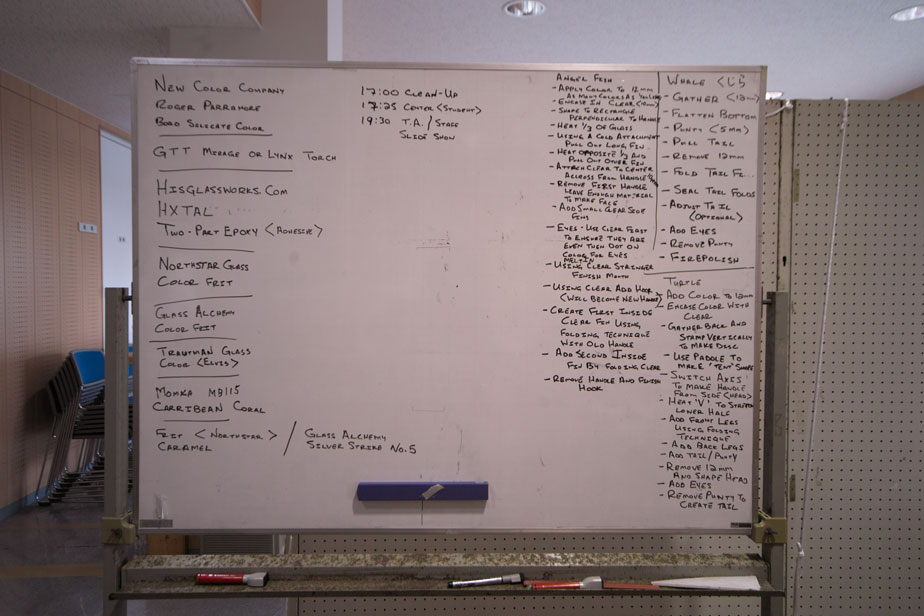 New Color Company
Roger Parramore
Boro Silicate Color
GTT Mirage or Lynx Torch
HisGlassworks.Com
HXTAL
Two-Part Epoxy <Adhesive>
Northstar Glass
Color Frit
Glass Alchemy
Color Frit
Trautman Glass
Color <Elvis>
Momka M3115
Carribean Coral
Frit <Northstar> /
Caramel
Glass Alchemy
Silver Strike No.5
17:00 Clean-Up
17:25 Center <Student>
19:30 T.A. / Staff
Slide Show
Angel Fish
- Apply Color to 12mm
As Many Colors As You Like
- Encase In Clear
- Shape to Rectangle
Perpendicular To Handle
- Heat 1/3 of Glass
- Using A Cold Attachment
Pull Out Long Fin
- Heat Opposite 1/3 And
Pull Out Other Fin
- Attach Clear To Center
Accross From Handle
- Remove First Handle
Leave Enough Material
To Make Face
- Add Small Clear Side
Fins
- Eyes - Use Clear First
To Ensure They Are
Even Then Dot On
Color For Eyes
Melt In
- Using Clear Stringer
Finish Mouth
- Using Clear Add Hook
(Will Become New Handle)
- Create First Inside
Clear Fin Using
Folding Technique
With Old Handle
- Add Second Inside
Fin By Folding Clear
- Remove Handle And Finish
Hook
Whale くじら
- Gather (12mm)
- Flatten Bottom
- Punty (5mm)
- Pull Tail
- Remove 12mm
- Fold Tail
- Seal Tail Folds
- Adjust Tail
(Optional)
- Add Eyes
- Remove Punty
- Firepolish
Turtle
- Add Color To 12mm
- Encase Color With
Clear
- Gather Back And
Stamp Vertically
To Make Disc
- Use Paddle To
Make "Tent" Shape
- Switch Axis
To Make Handle
From Side <Head>
- Heat 'V' To
Lower Half
- Add Front Legs
Using Folding
Technique
- Add Back Legs
- Add Tail/Punty
- Remove 12mm
And Shape Head
- Add Eyes
- Remove Punty To
Create Tail